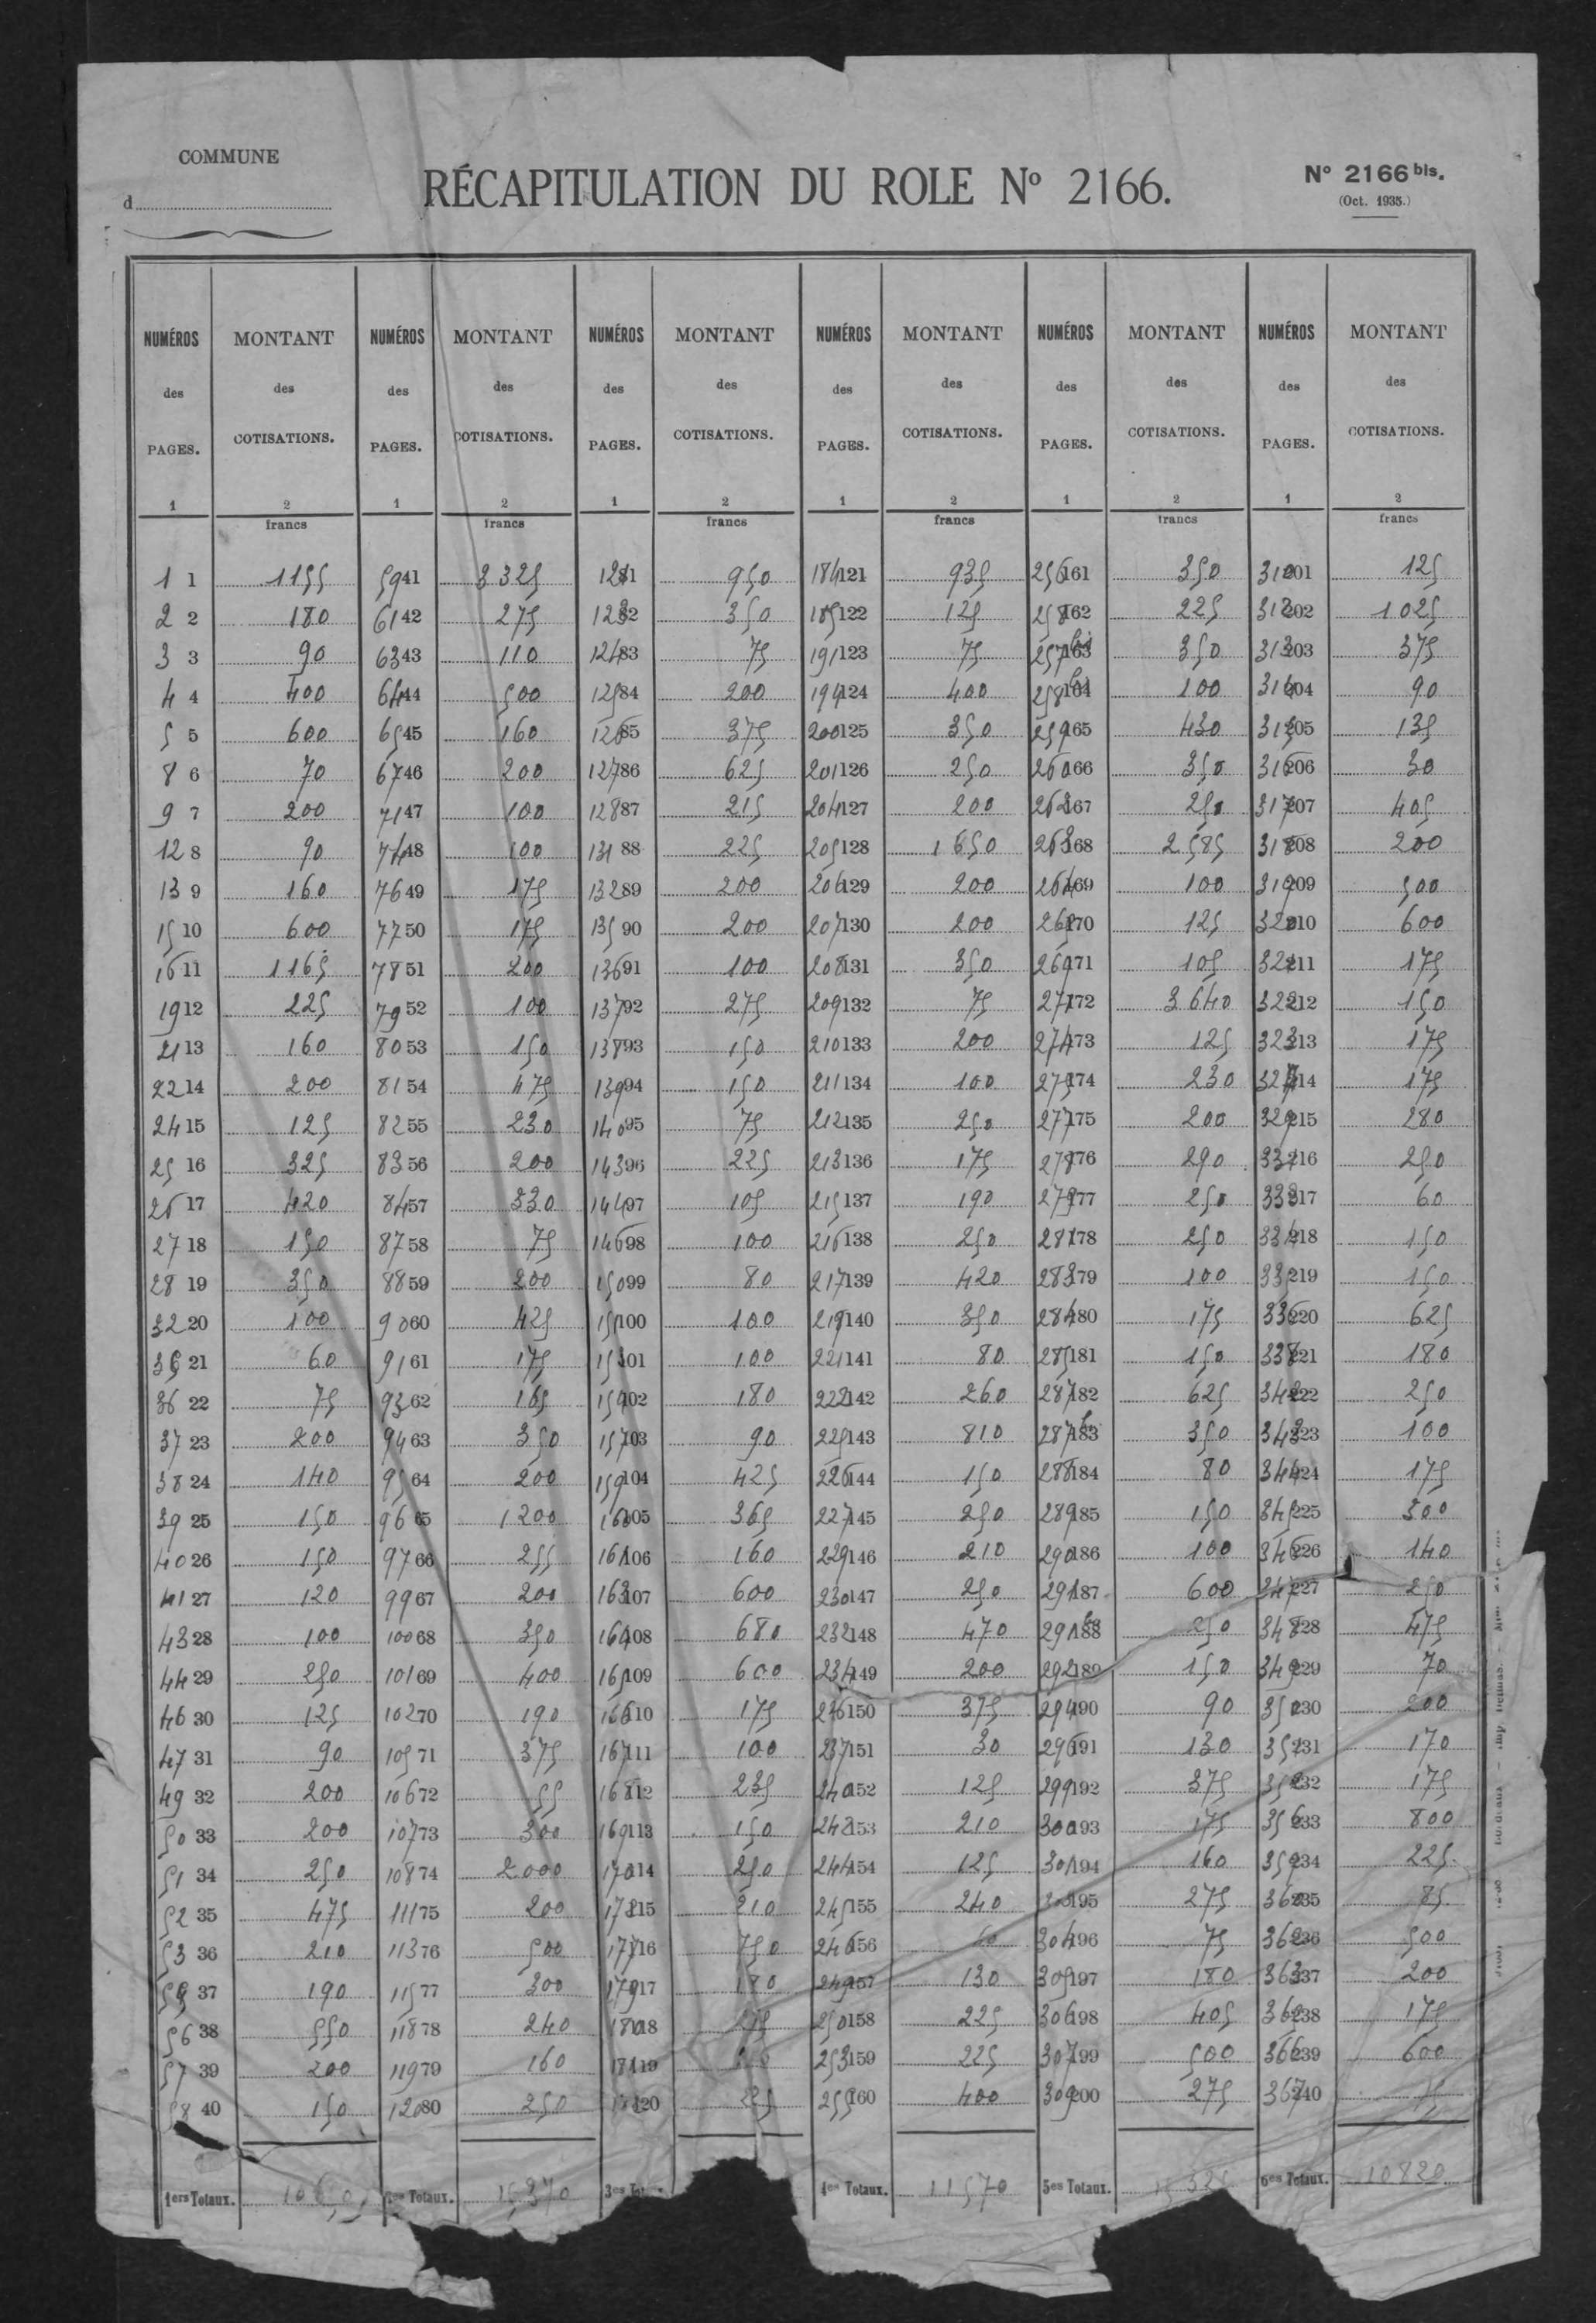 COMMUNE
d
RÉCAPITULATION DU ROLE No 2166.
No 2166 bis.
(Oct. 1935.)
NUMÉROS des PAGES. MONTANT des COTISATIONS. NUMÉROS des PAGES. MONTANT des COTISATIONS. NUMÉROS des PAGES. MONTANT des COTISATIONS. NUMÉROS des PAGES. MONTANT des COTISATIONS. NUMÉROS des PAGES. MONTANT des COTISATIONS. NUMÉROS des PAGES. MONTANT des COTISATIONS.
1 2 1 2 1 2 1 2 1 2 1 2
francs francs francs francs francs francs
1 1 1155 59 41 3325 81 950 184 121 935 256 161 350 310 201 125
2 2 180 61 42 275 123 82 350 185 122 125 258 162 225 312 202 1025
3 3 90 63 43 110 124 83 75 191 123 75 257 bis 163 350 313 203 375
4 4 400 64 44 500 125 84 200 194 124 400 258 bis 164 100 204 90
5 5 600 65 45 160 126 85 375 200 125 350 259 165 430 315 205 135
8 6 70 67 46 200 127 86 625 201 126 250 260 166 350 316 206 30
9 7 200 71 47 100 128 87 215 204 127 200 262 167 250 317 207 405
12 8 90 74 48 100 131 88 225 205 128 1650 263 168 2585 318 208 200
13 9 160 76 49 175 132 89 200 206 129 200 264 169 100 319 209 500
15 10 600 77 50 175 135 90 200 207 130 200 265 170 125 320 210 600
16 11 1165 78 51 200 136 91 100 208 131 350 269 171 105 321 211 175
19 12 225 79 52 100 137 92 275 209 132 75 271 172 3640 322 212 150
21 13 160 80 53 150 138 93 150 210 133 200 274 173 125 323 213 175
22 14 200 81 54 475 139 94 150 211 134 100 275 174 230 327 214 175
24 15 125 82 55 230 140 95 75 212 135 250 277 175 200 329 215 280
25 16 325 83 56 200 143 96 225 213 136 175 278 176 290 216 250
26 17 420 84 57 330 144 97 105 215 137 190 279 177 250 333 217 60
27 18 150 87 58 75 146 98 100 216 138 250 281 178 250 334 218 150
28 19 350 88 59 200 150 99 80 217 139 420 283 179 100 335 219 150
32 20 100 90 60 425 151 100 100 219 140 350 284 180 175 336 220 625
35 21 60 91 61 175 153 101 100 221 141 80 285 181 150 338 221 180
36 22 75 93 62 165 102 180 222 142 260 287 182 625 342 222 250
37 23 200 94 63 350 157 103 90 225 143 810 287 b 183 350 343 223 100
38 24 140 95 64 200 159 104 425 226 144 150 288 184 80 344 224 175
39 25 150 96 65 1200 160 105 365 227 145 250 289 185 150 345 225 300
40 26 150 97 66 255 161 106 160 229 146 210 290 186 100 346 226 140
41 27 120 99 67 200 163 107 600 230 147 250 291 187 600 347 227 250
43 28 100 100 68 350 164 108 680 232 148 470 291 b 188 250 348 228 475
44 29 250 101 69 400 165 109 600 234 149 200 292 189 150 349 229 70
46 30 125 102 70 190 166 110 175 236 150 375 294 190 90 350 230 200
47 31 90 105 71 375 167 111 100 237 151 30 296 191 130 351 231 170
49 32 200 106 72 55 168 112 235 240 152 125 299 192 375 352 232 175
50 33 200 107 73 300 169 113 150 243 153 210 300 193 175 356 233 800
51 34 250 108 74 2000 170 114 250 244 154 125 301 194 160 359 234 225
52 35 475 111 75 200 115 210 245 155 240 195 275 360 235 85
53 36 210 113 76 500 177 116 750 246 156 60 304 196 75 362 236 500
37 190 115 77 300 179 117 180 249 157 130 305 197 180 363 237 200
56 38 550 118 78 240 180 118 250 158 225 306 198 405 238 175
57 39 200 119 79 160 181 119 253 159 225 307 199 500 366 239 600
58 40 150 120 80 250 120 255 160 400 309 200 275 367 240
1ers Totaux. Totaux. 15370 3es 4es Totaux. 11570 5es Totaux. 6es Totaux. 10820